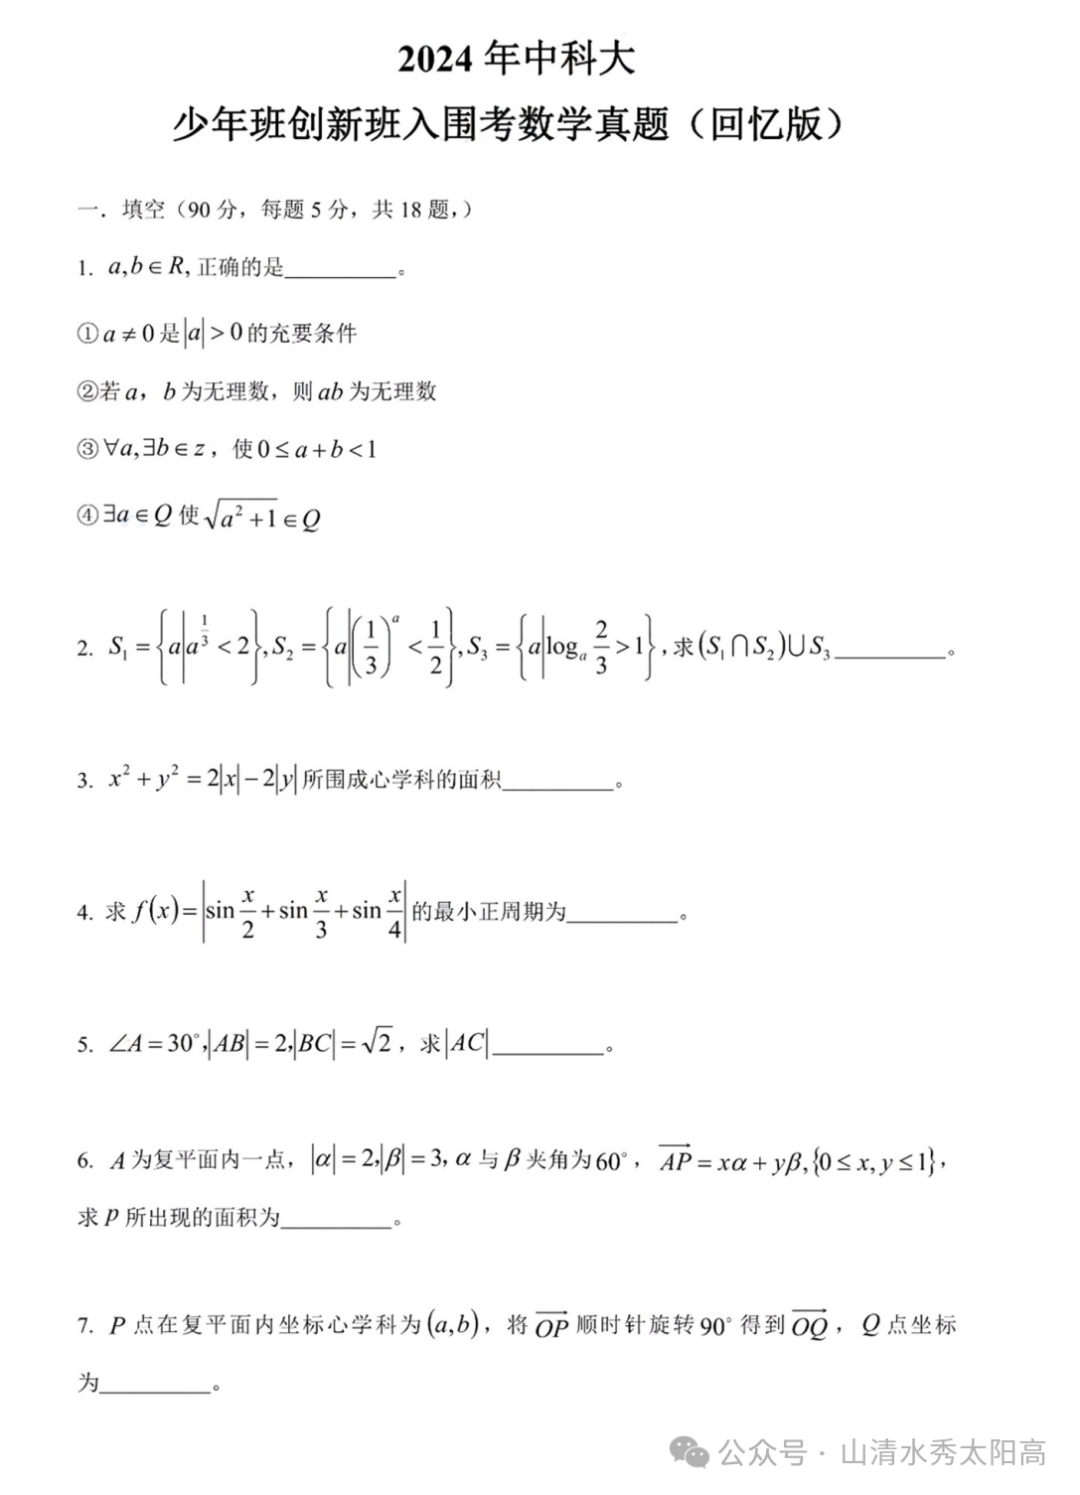 2024 年中科大
少年班创新班入围考数学真题（回忆版）
一．填空（90 分，每题 5 分，共 18 题，）
1. a,b∈R, 正确的是__________。
①a≠0是|a|>0的充要条件
②若a，b为无理数，则ab为无理数
③∀a,∃b∈z，使0≤a+b<1
④∃a∈Q使√(a²+1)∈Q
2. S₁={a|a^(1/3)<2},S₂={a|(1/3)^a<1/2},S₃={a|log_a 2/3>1},求(S₁∩S₂)∪S₃__________。
3. x²+y²=2|x|−2|y|所围成心学科的面积__________。
4. 求f(x)=|sin x/2+sin x/3+sin x/4|的最小正周期为__________。
5. ∠A=30°,|AB|=2,|BC|=√2，求|AC|__________。
6. A为复平面内一点，|α|=2,|β|=3,α与β夹角为60°，AP→=xα+yβ,{0≤x,y≤1}，
求P所出现的面积为__________。
7. P点在复平面内坐标心学科为(a,b)，将OP→顺时针旋转90°得到OQ→，Q点坐标
为__________。
公众号 · 山清水秀太阳高